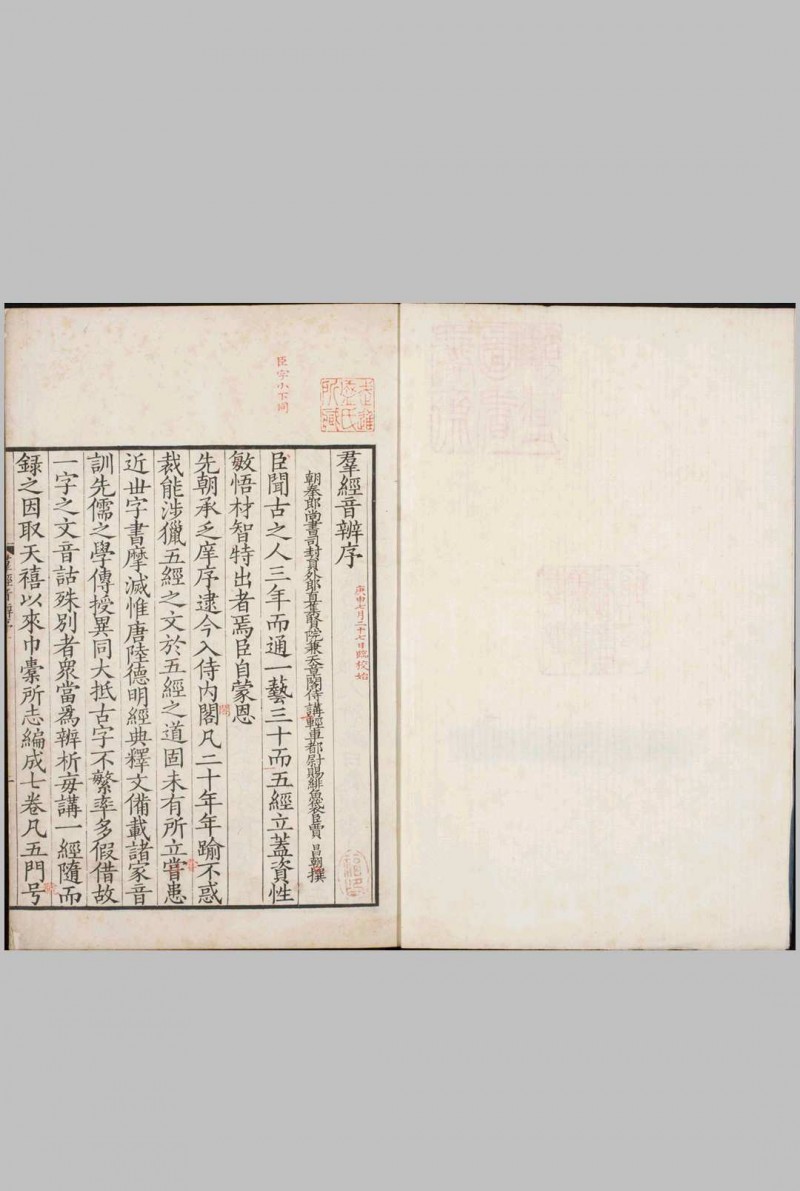 臣字小下同
羣經音辨序
庚申七月二十七日臨校始
朝奉郎尚書司封員外郎直集賢院兼天章閣侍講輕車都尉賜緋魚袋臣賈 昌朝撰
臣聞古之人三年而通一藝三十而五經立蓋資性
敏悟材智特出者焉臣自蒙恩
先朝承乏庠序逮今入侍內閣凡二十年年踰不惑
裁能涉獵五經之文於五經之道固未有所立嘗患
近世字書摩滅惟唐陸德明經典釋文備載諸家音
訓先儒之學傳授異同大抵古字不繁率多假借故
一字之文音詁殊別者衆當為辨析每講一經隨而
錄之因取天禧以來巾橐所志編成七卷凡五門号